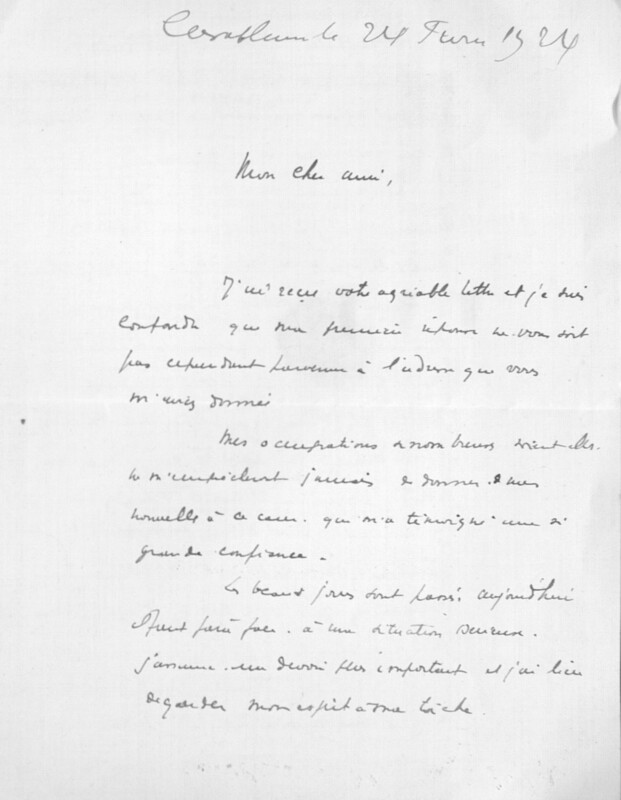 Casablanca le 24 Fevrier 1924
Mon cher ami,
J'ai reçu votre agréable lettre et je suis
confondu que ma première réponse ne vous soit
pas cependant parvenue à l'adresse que vous
m'aviez donnée
Mes occupations si nombreuses soient elles
ne m'empêcheront jamais de donner de mes
nouvelles à ce cœur qui m'a témoigné une si
grande confiance.
Les beaux jours sont passés, aujourd'hui
il faut faire face à une situation sérieuse.
J'assume un devoir plus important et j'ai lieu
de garder mon esprit à ma tâche.